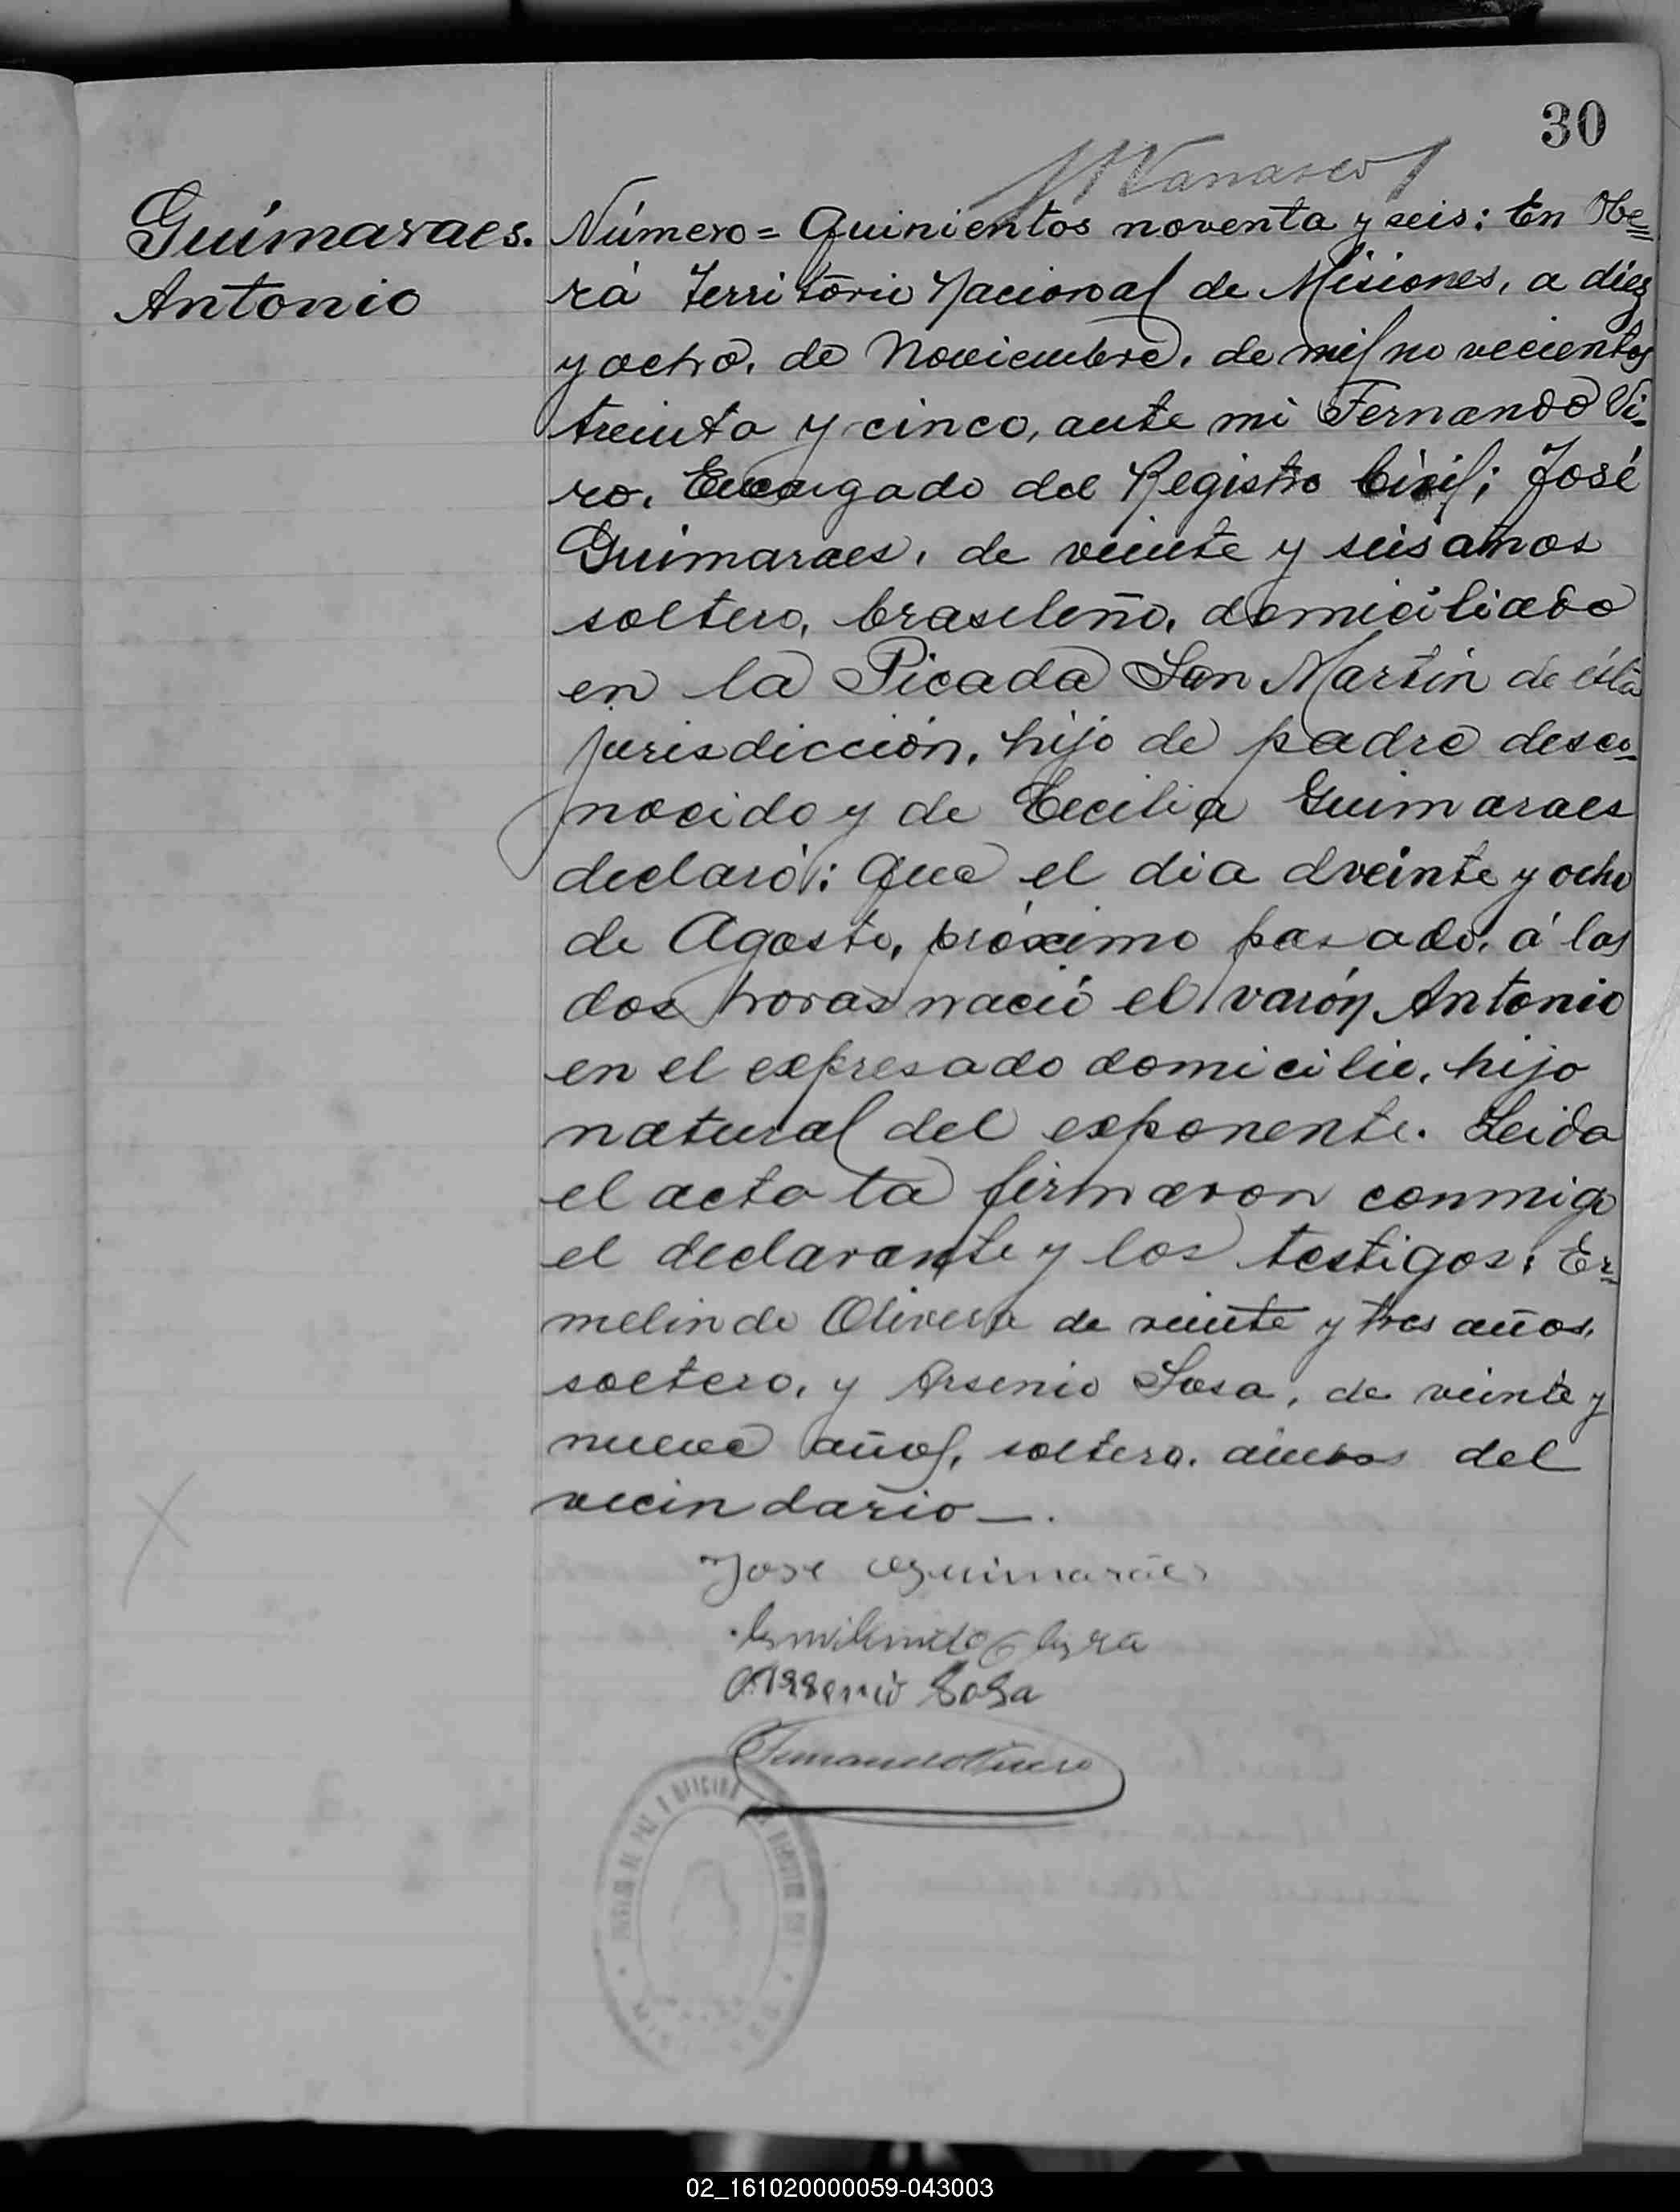 30
Guimaraes.
Antonio
Número = Quinientos noventa y seis: En Obe=
rá Territorio Nacional de Misiones, a diez
y ocho, de Noviembre, de mil novecientos
treinta y cinco, ante mi Fernando Vi-
ro, Encargado del Registro Civil; José
Guimaraes, de veinte y seis años
soltero, brasileño, domiciliado
en la Picada San Martín de ésta
jurisdicción, hijo de padre desco-
nocido y de Cecilia Guimaraes
declaró: Que el dia dveinte y ocho
de Agosto, próximo pasado, á las
dos horas nació el varón Antonio
en el expresado domicilio, hijo
natural del exponente. Leida
el acta la firmaron conmigo
el declarante y los testigos: Er=
melindo Olivera de veinte y tres años,
soltero, y Arsenio Sosa, de veinte y
nueve años, soltero, ambos del
vecindario —.
Jose Guimarães
Arsenio Sosa
02_161020000059-043003